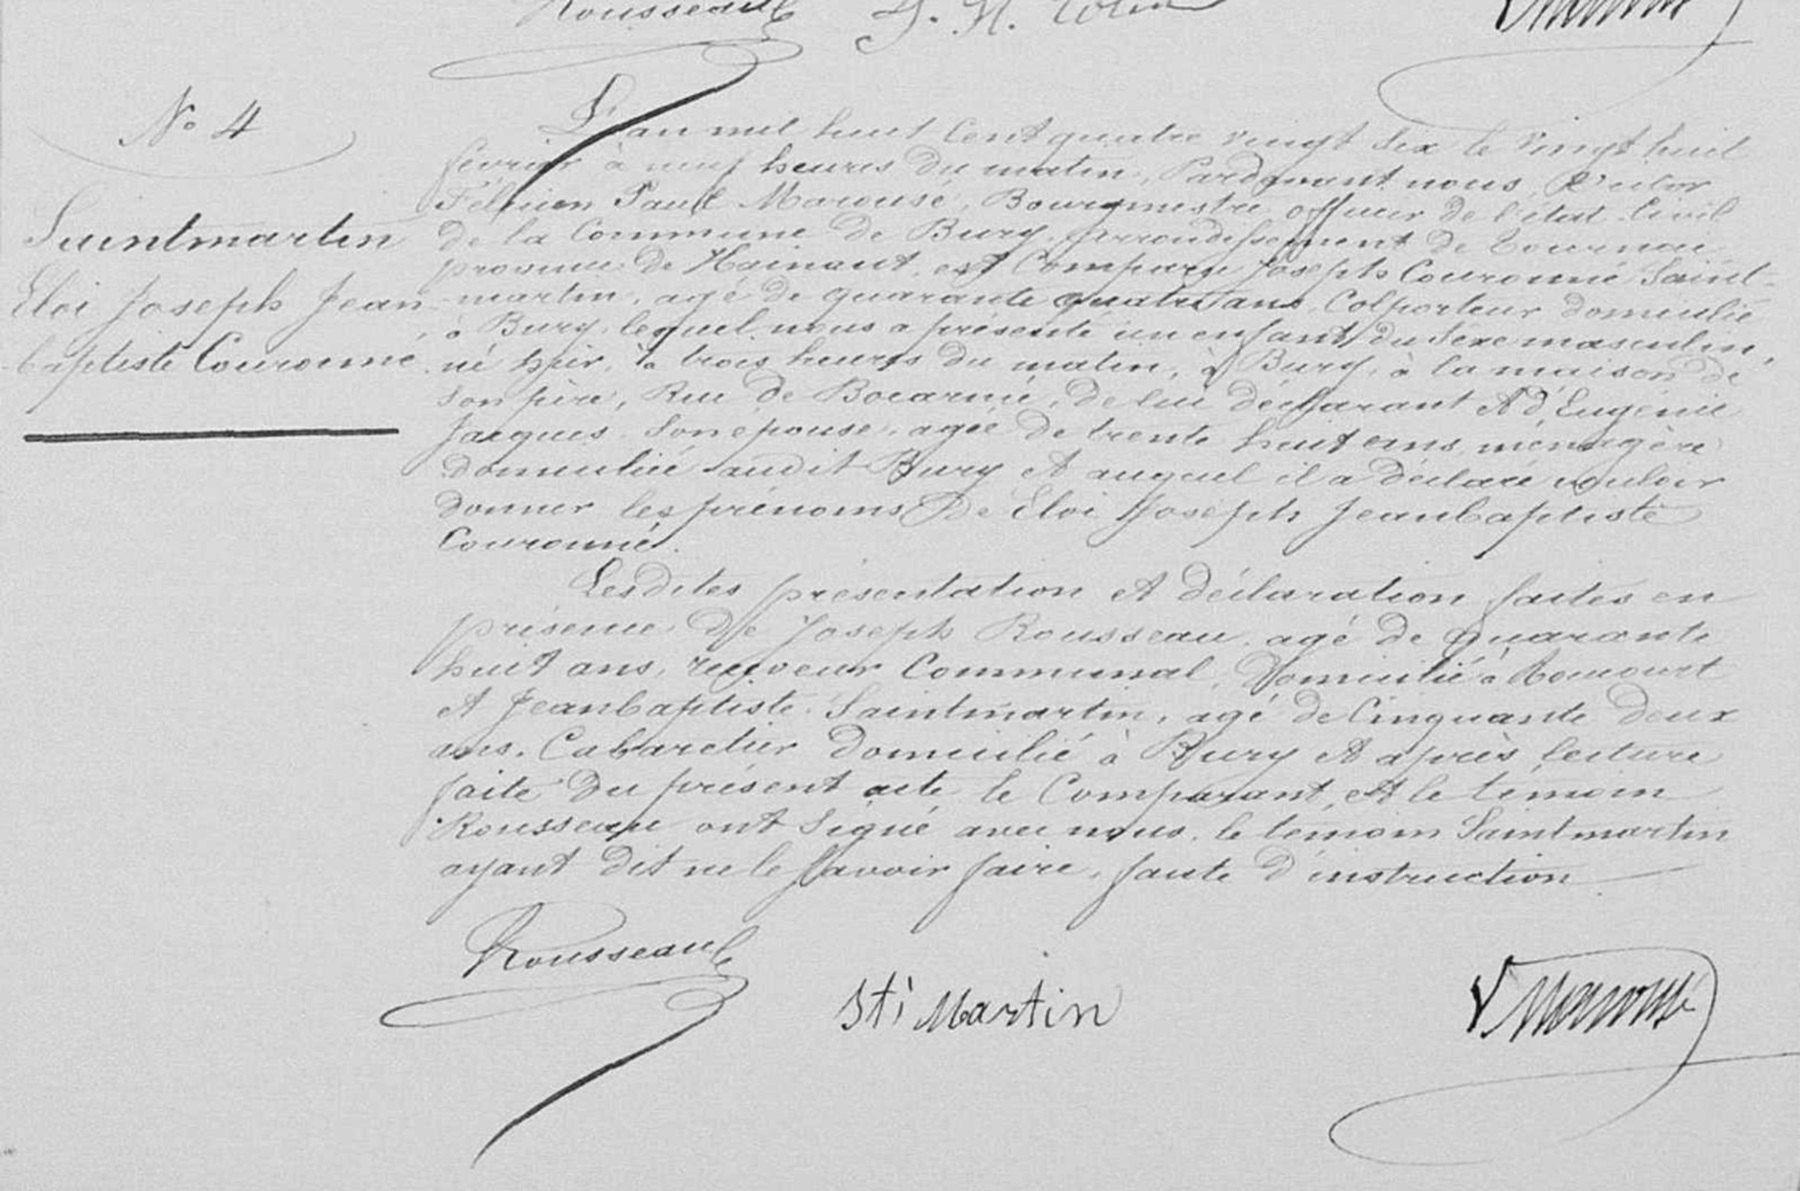 Rousseau
N° 4
Saintmartin
Eloi Joseph Jean
baptiste Couronné
L'an mil huit cent quatre vingt six le vingt huit
février à neuf heures du matin, Pardevant nous, Victor
Félicien Paul Marousé, Bourgmestre officier de l'état-civil
de la Commune de Bury, arrondissement de Tournai
province de Hainaut, est Comparu Joseph Couronné Saint-
martin, agé de quarante quatre ans, Colporteur domicilié
à Bury, lequel nous a présenté un enfant du Sexe masculin,
né hier, à trois heures du matin, à Bury, à la maison de
son père, Rue de Bocarmé, de lui déclarant et d'Eugénie
Jacques son épouse, agée de trente huit ans, ménagère
domiciliée audit Bury et auquel il a déclaré vouloir
donner les prénoms de Eloi Joseph Jeanbaptiste
Couronné.
Lesdites présentation et déclaration faites en
présence de Joseph Rousseau, agé de quarante
huit ans, receveur Communal, domicilié à Roucourt
et Jeanbaptiste Saintmartin, agé de Cinquante deux
ans, Cabaretier domicilié à Bury et après lecture
faite du présent acte le Comparant et le témoin
Rousseau ont signé avec nous, le témoin Saintmartin
ayant dit ne le savoir faire, faute d'instruction
Rousseau
St Martin
V Marousé